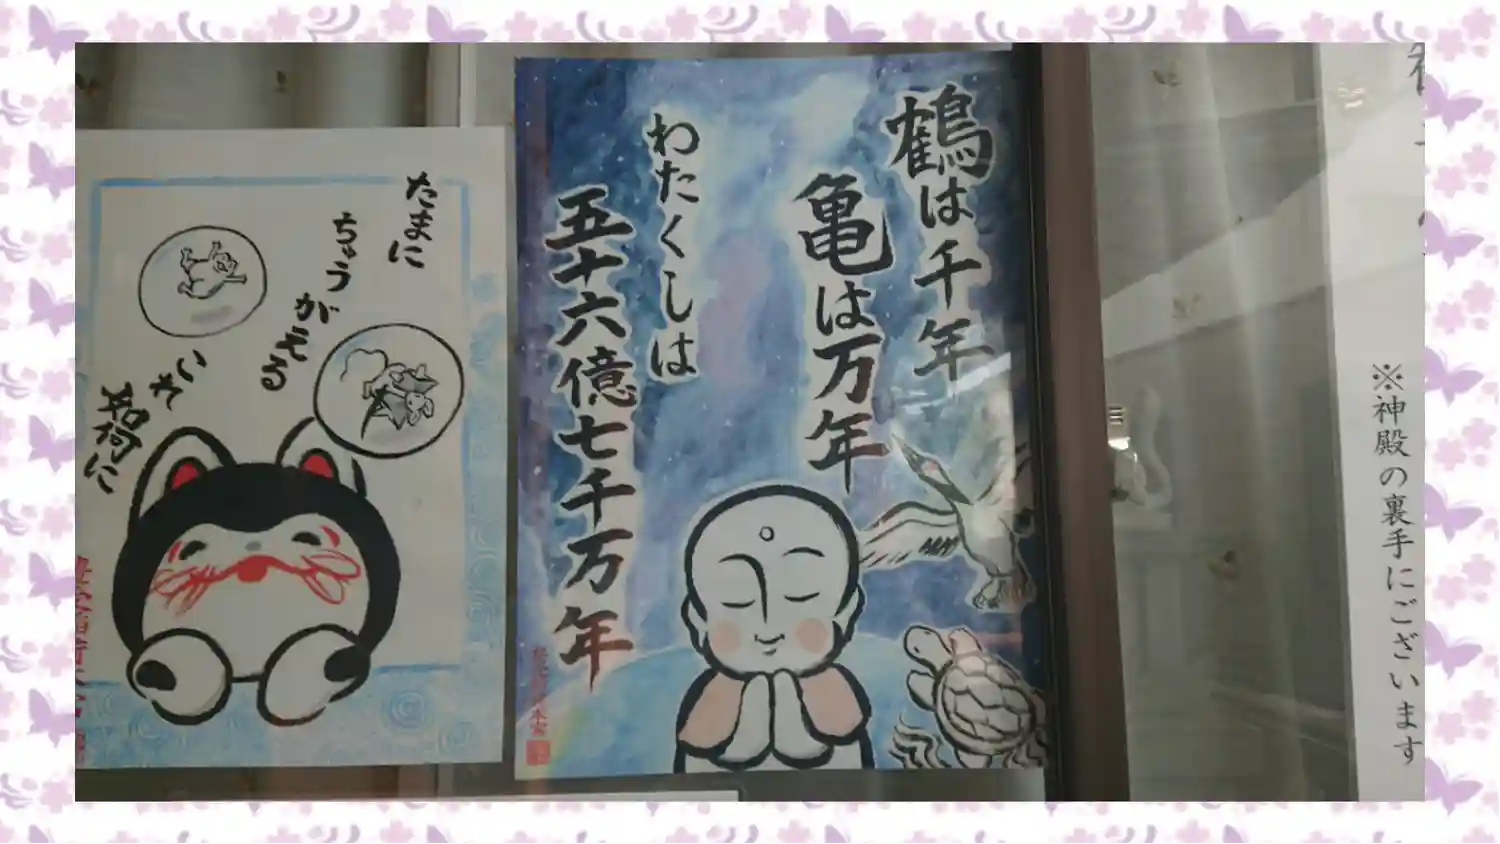 ※神殿の裏手にございます
鶴は千年
亀は万年
わたくしは
五十六億七千万年
たまに
ちゅう
がえる